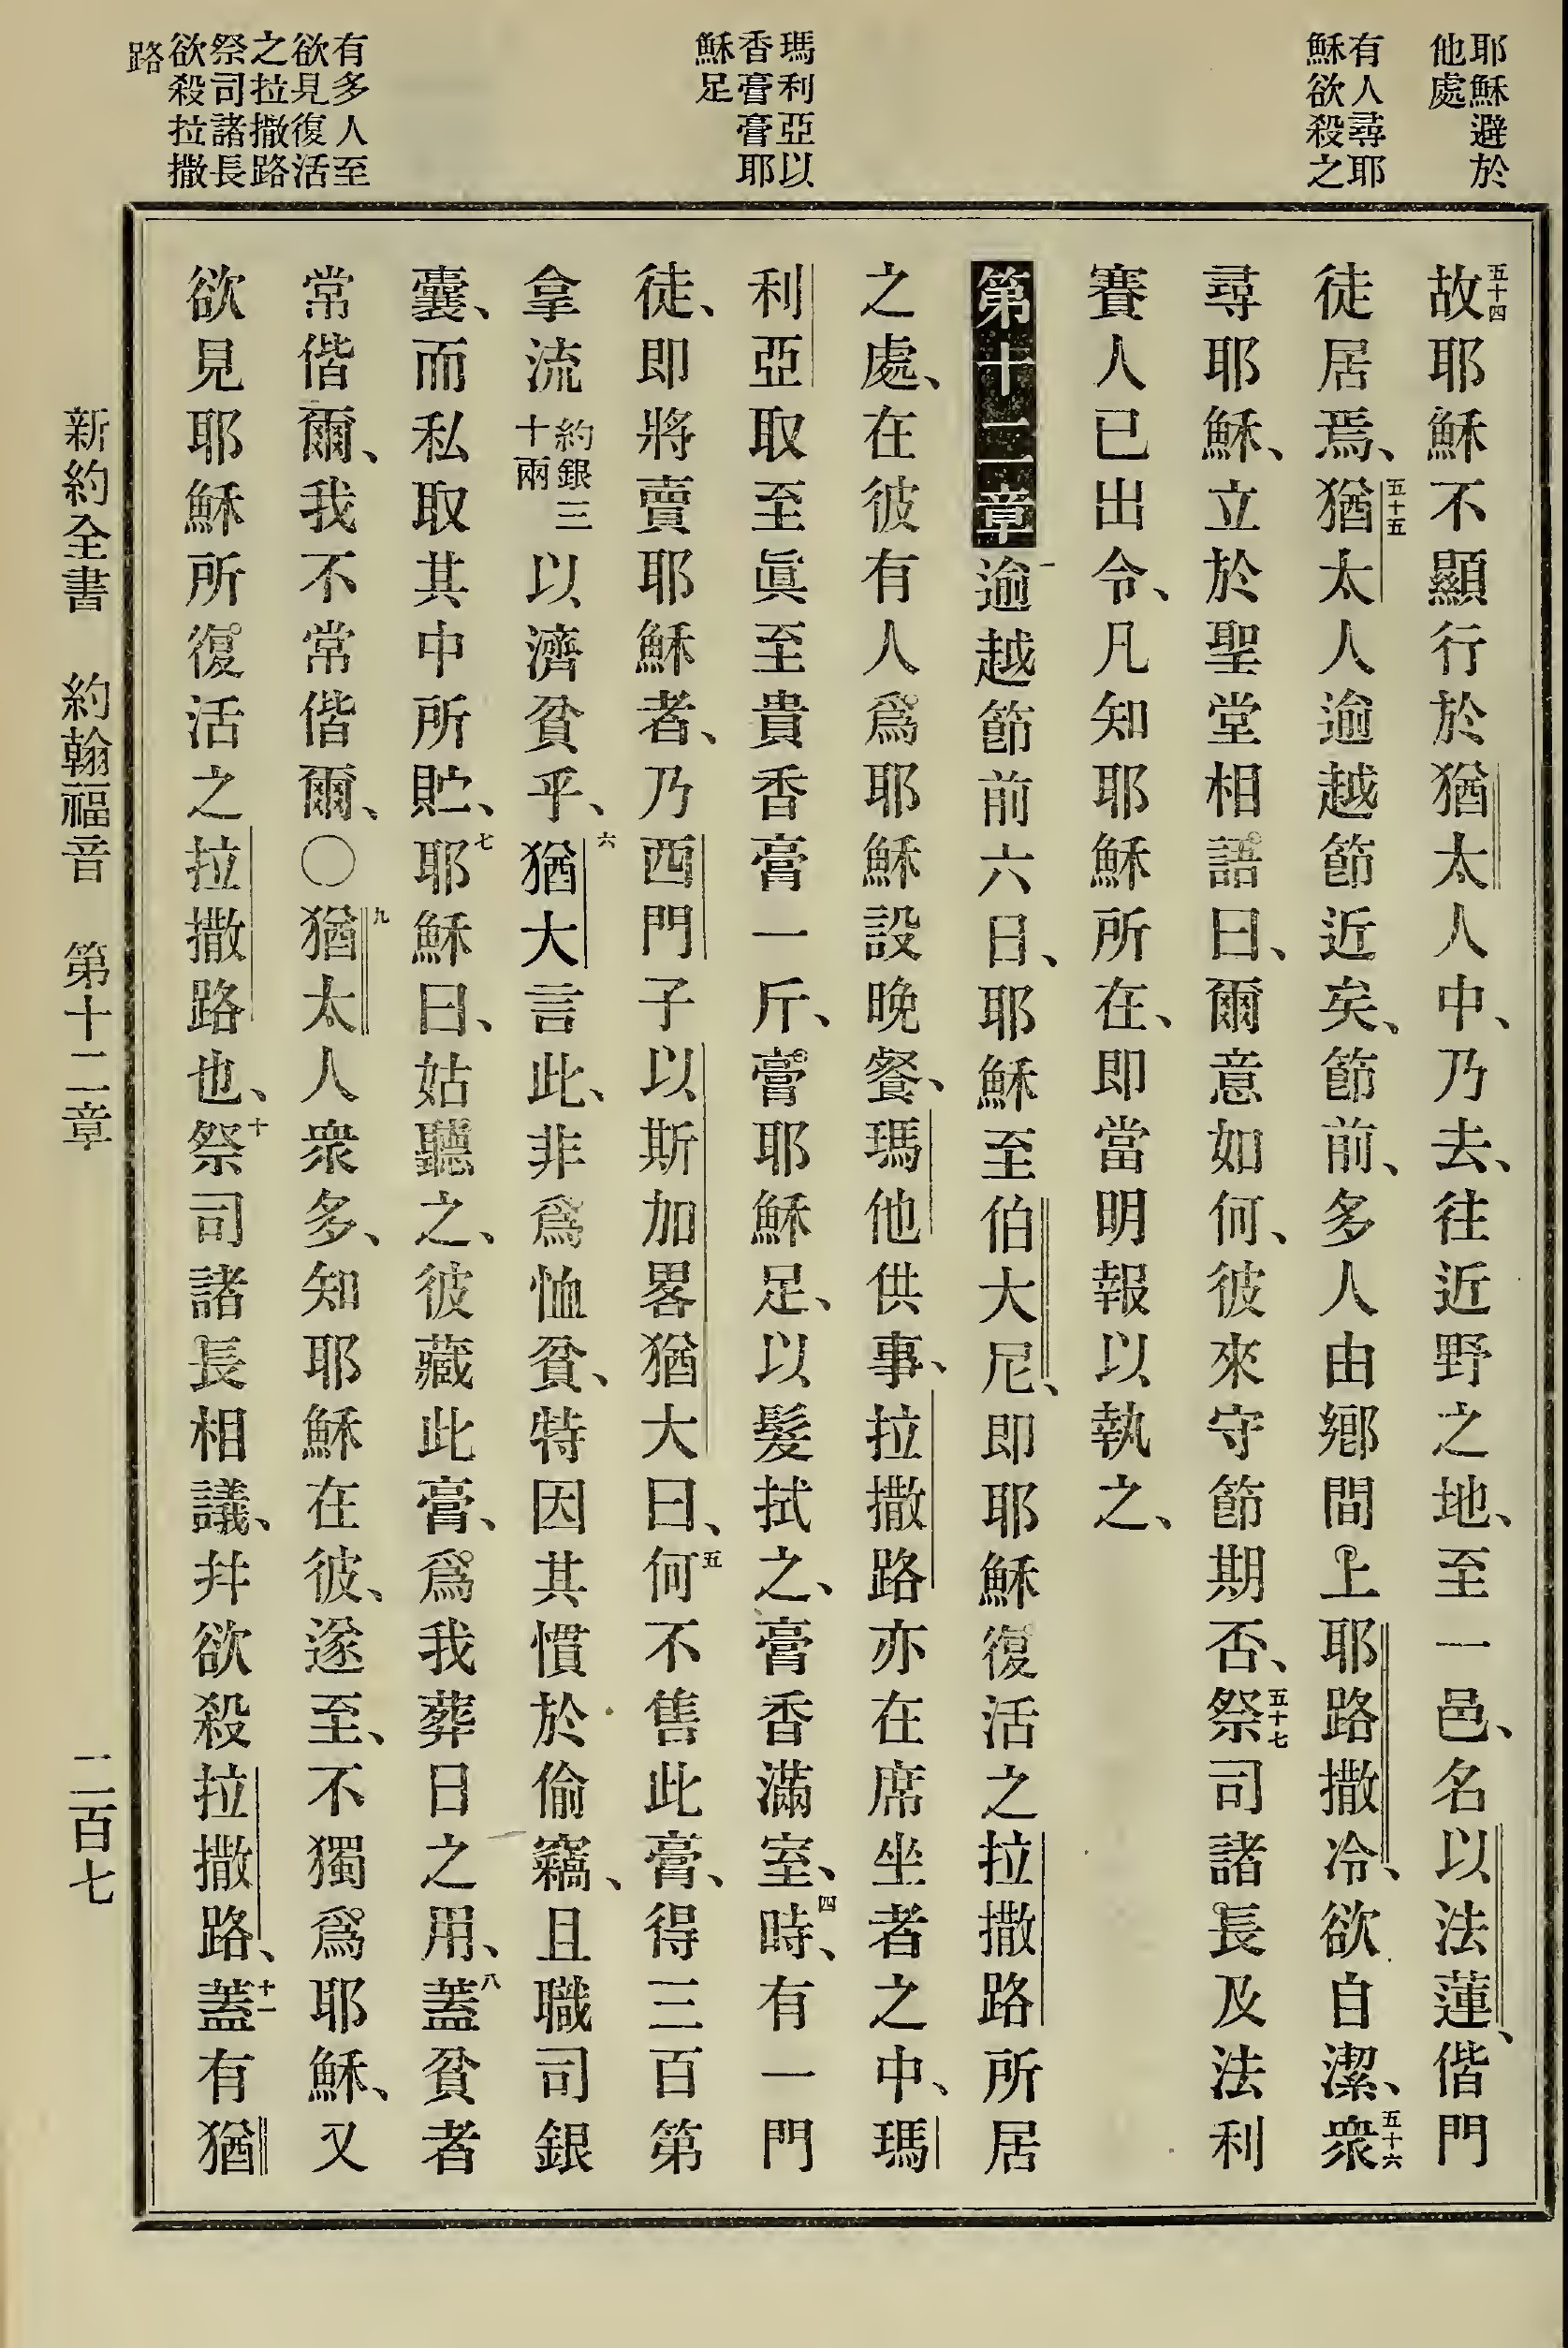 耶穌避於
他處
有人尋耶
穌欲殺之
瑪利亞以
香膏膏耶
穌足
有多人至
欲見復活
之拉撒路
祭司諸長
欲殺拉撒
路
五十四故耶穌不顯行於猶太人中、乃去、往近野之地、至一邑、名以法蓮、偕門
徒居焉、五十五猶太人逾越節近矣、節前、多人由鄕間上耶路撒冷、欲自潔、五十六衆
尋耶穌、立於聖堂相語曰、爾意如何、彼來守節期否、五十七祭司諸長及法利
賽人已出令、凡知耶穌所在、即當明報以執之、
第十二章一逾越節前六日、耶穌至伯大尼、即耶穌復活之拉撒路所居
之處、在彼有人爲耶穌設晩餐、瑪他供事、拉撒路亦在席坐者之中、瑪
利亞取至眞至貴香膏一斤、膏耶穌足、以髮拭之、膏香滿室、四時、有一門
徒、即將賣耶穌者、乃西門子以斯加畧猶大曰、五何不售此膏、得三百第
拿流約銀三十兩以濟貧乎、六猶大言此、非爲恤貧、特因其慣於偷竊、且職司銀
囊、而私取其中所貯、七耶穌曰、姑聽之、彼藏此膏、爲我葬日之用、八蓋貧者
常偕爾、我不常偕爾、〇九猶太人衆多、知耶穌在彼、遂至、不獨爲耶穌、又
欲見耶穌所復活之拉撒路也、十祭司諸長相議、幷欲殺拉撒路、十一蓋有猶
新約全書 約翰福音 第十二章 二百七